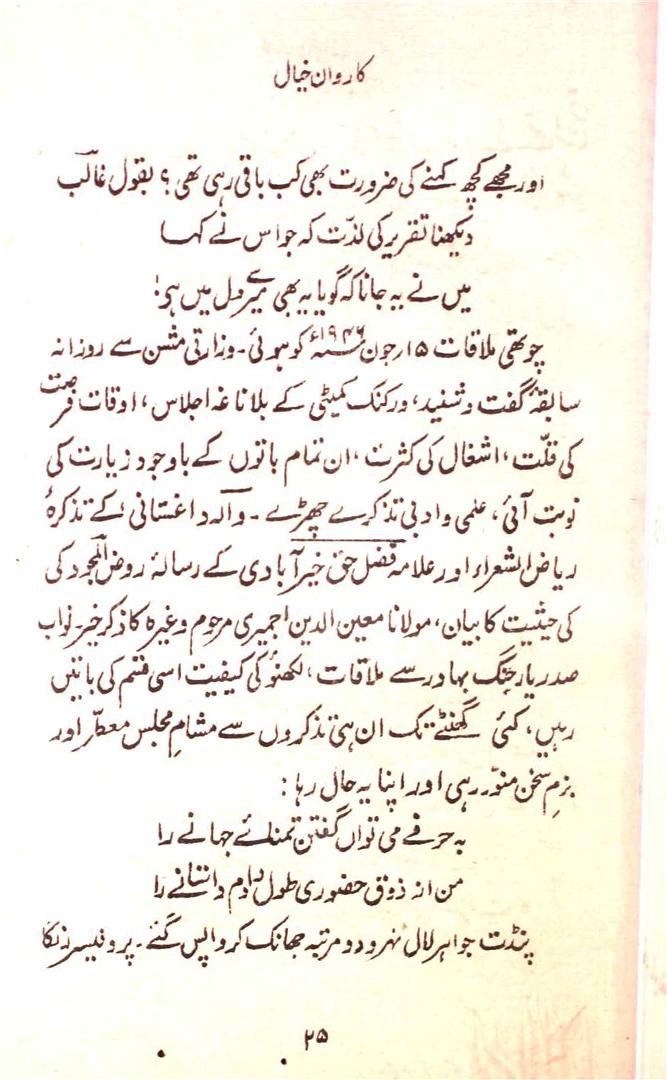 کاروان خیال
اور مجھے کچھ کہنے کی ضرورت بھی کب باقی رہی تھی؟ بقول غالب
دیکھنا تقریر کی لذّت کہ جو اس نے کہا
میں نے یہ جانا کہ گویا یہ بھی میرے دل میں ہی!
چوتھی ملاقات ۱۵؍جون ۱۹۴۶ء کو ہوئی۔ وزارتی مشن سے روزانہ
سابقۂ گفت و شنید، ورکنگ کمیٹی کے بلا ناغہ اجلاس، اوقات فرصت
کی قلّت، اشغال کی کثرت، ان تمام باتوں کے باوجود زیارت کی
نوبت آئی، علمی و ادبی تذکرے چھڑے۔ والہ داغستانی کے تذکرۂ
ریاض الشعراء اور علامہ فضل حق خیرآبادی کے رسالۂ روض المجود کی
کی حیثیت کا بیان، مولانا معین الدین اجمیری مرحوم وغیرہ کا ذکر خیر۔ نواب
صدر یار جنگ بہادر سے ملاقات، لکھنؤ کی کیفیت اسی قسم کی باتیں
رہیں، کئی گھنٹے تک ان ہی تذکروں سے مشامِ مجلس معطّر اور
بزمِ سخن منوّر رہی اور اپنا یہ حال رہا:
بہ حرفے می تواں گفتن تمنائے جہانے را
من از ذوق حضوری طول دادم داستانے را
پنڈت جواہر لال نہرو دو مرتبہ جھانک کر واپس گئے۔ پروفیسر
۲۵